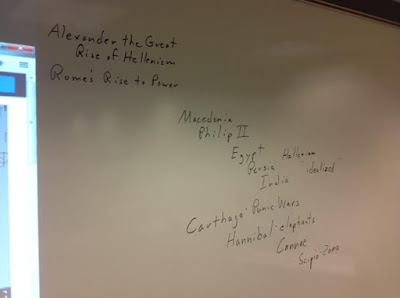 Alexander the Great
Rise of Hellenism
Rome's Rise to Power
Macedonia
Philip II
Egypt
Persia Hellenism
India "idealized"
Carthage · Punic Wars
Hannibal · elephants
Cannae
Scipio · Zama